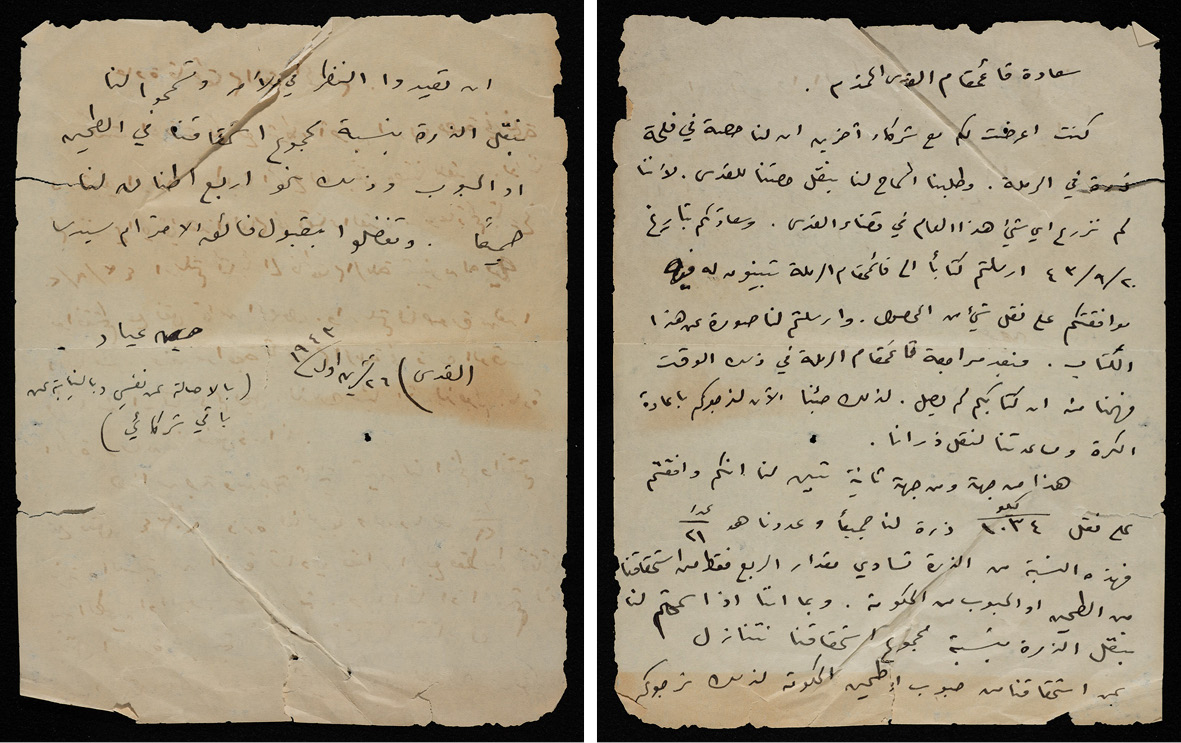 سعادة قائمقام القدس المحترم .
كنت اعرضت لكم مع شركاء آخرين ان لنا حصة في فلحة
ذرة في الرملة . وطلبنا السماح لنا بنقل حصتنا للقدس . لأننا
لم نزرع اي شيء هذا العام في قضاء القدس . وسعادتكم بتاريخ
٤٣/٩/٢٠ ارسلتم كتاباً الى قائمقام الرملة تبينون له فيه
موافقتكم على نقل شيء من المحصول . وارسلتم لنا صورة عن هذا
الكتاب . فبعد مراجعة قائمقام الرملة في ذلك الوقت
فهمنا منه ان كتابكم لم يصل . لذلك جئنا الآن لنرجوكم باعادة
الكرة ومساعدتنا لنقل ذرانا .
هذا من جهة ومن جهة ثانية تبين لنا انكم وافقتم
على نقل ١٠٣٤ كيلو ذرة لنا جميعاً وعددنا هو ٢١ عدداً
فهذه النسبة من الذرة تساوي مقدار الربع فقط من استحقاقنا
من الطحين او الحبوب من الحكومة . وبما اننا اذا سمحتم لنا
بنقل الذرة بنسبة مجموع استحقاقنا نتنازل
عن استحقاقنا من حبوب او طحين الحكومة لذلك نرجوكم
ان تعيدوا النظر في الأمر وتسمحوا لنا
بنقل الذرة بنسبة مجموع استحقاقنا في الطحين
او الحبوب وذلك نحو اربع اطنان لنا
جميعاً . وتفضلوا بقبول فائق الاحترام سيدي
القدس) ٢٦ تشرين اول ١٩٤٣
عياد
(بالاصالة عن نفسي وبالنيابة عن
باقي شركائي)